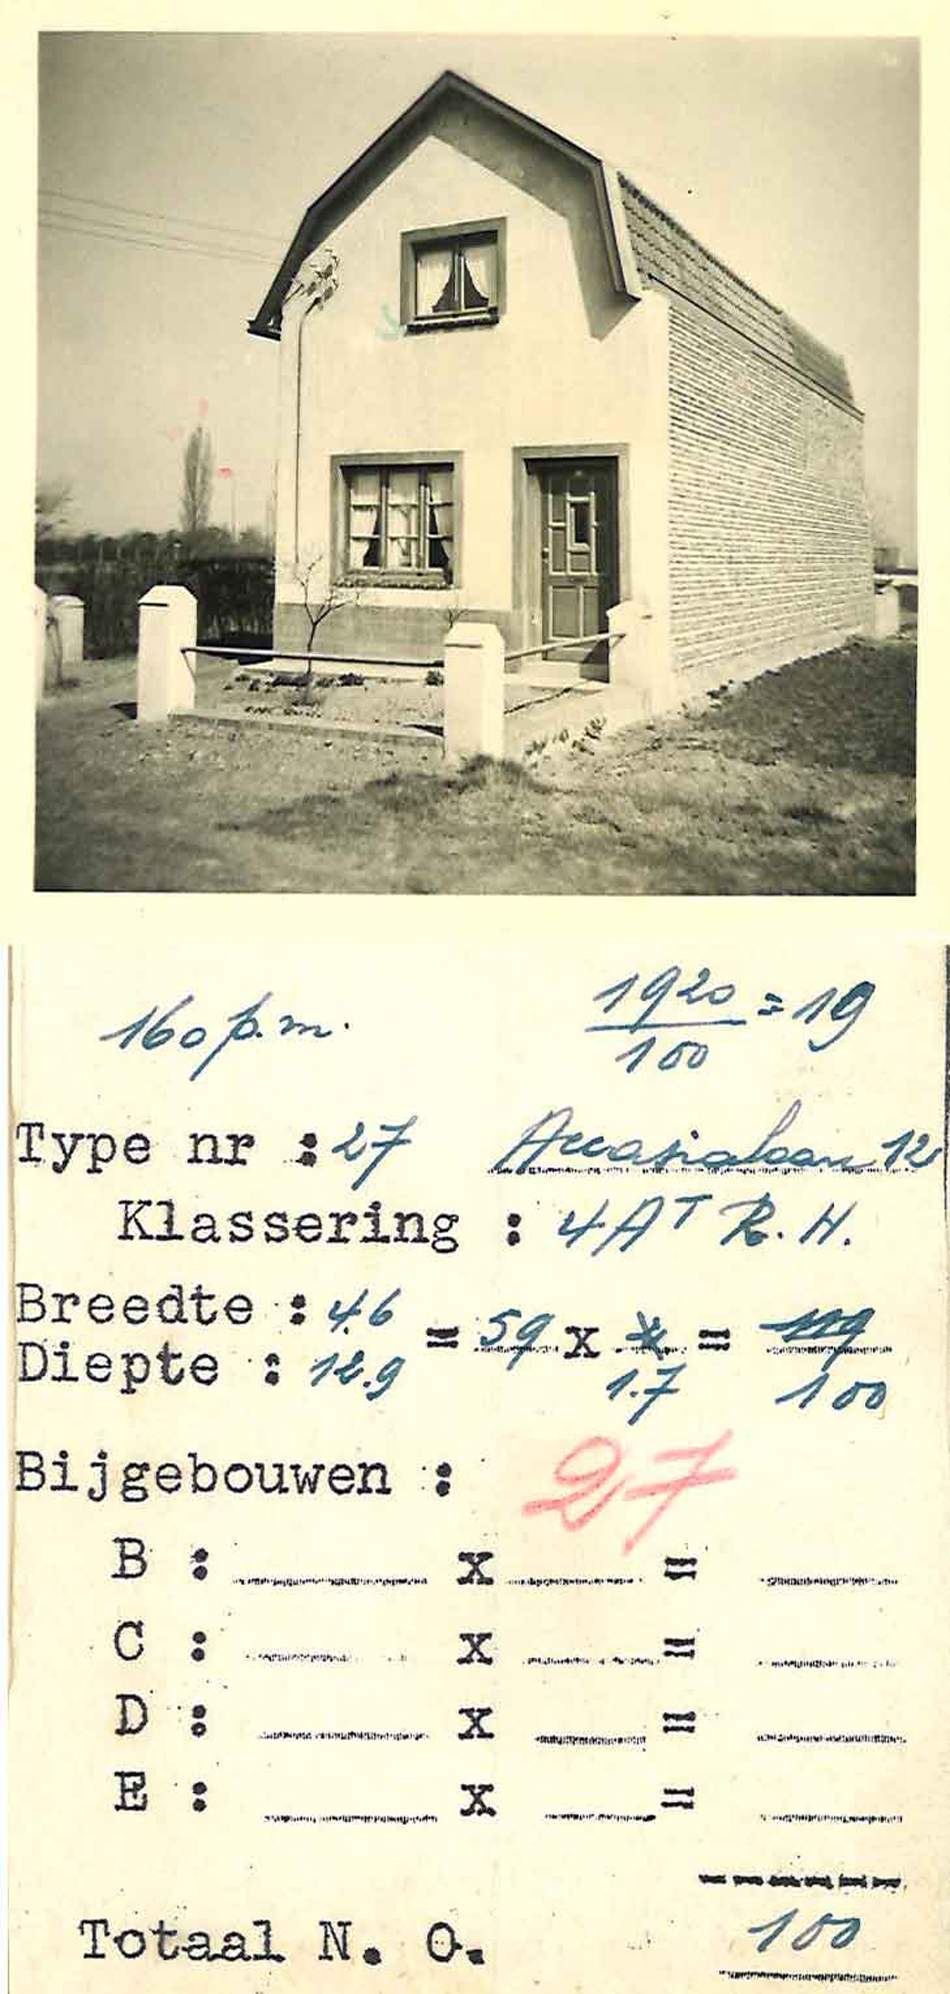 160 p.m. 1920/100 = 19
Type nr : 27 Accasialaan 12
Klassering : 4A^T R.H.
Breedte : 4.6
Diepte : 12.9 = 59 x 1.7 = 100
Bijgebouwen : 27
B : x =
C : x =
D : x =
E : x =
Totaal N. O. 100